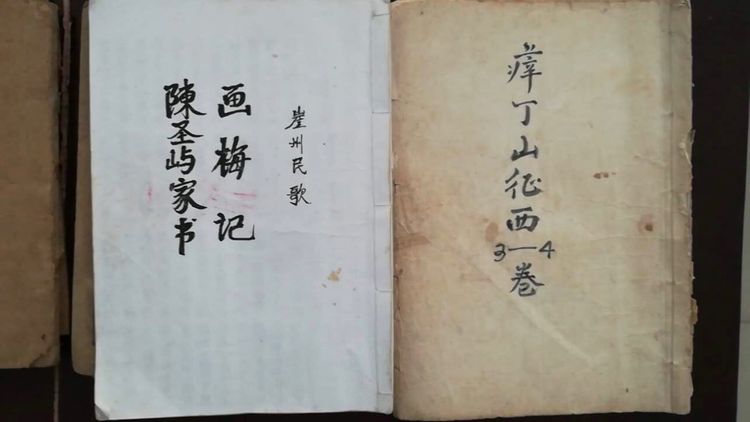 崖州民歌
画梅记
陳圣屿家书
瘴丁山征西
3—4
卷